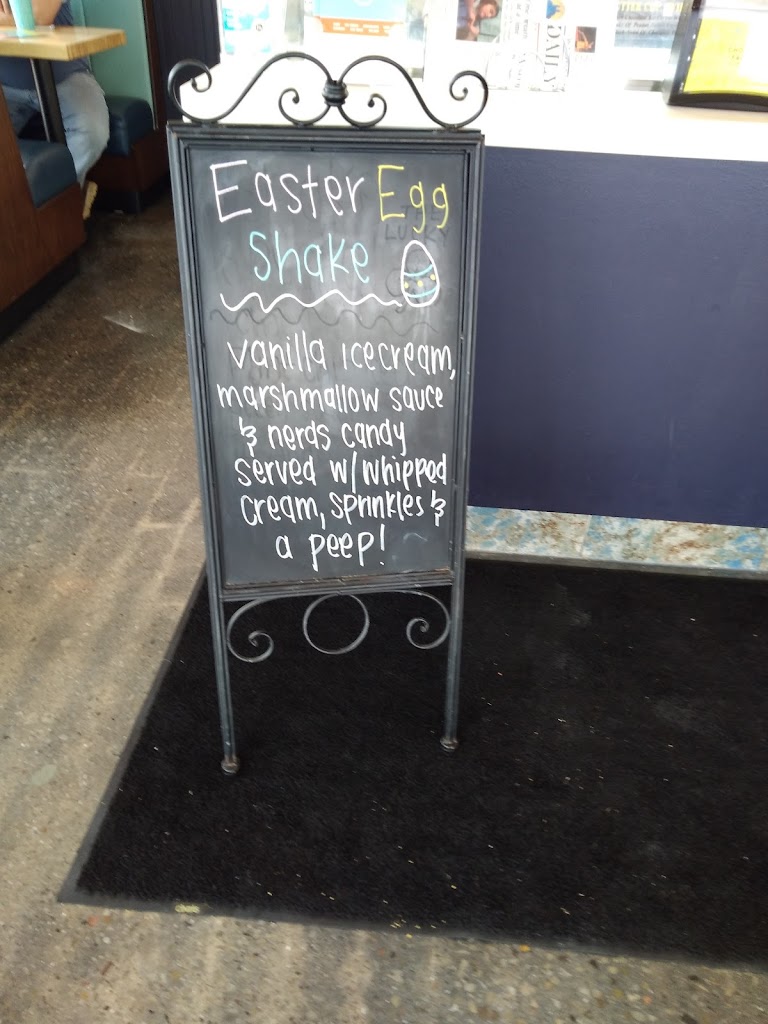 Easter Egg
Shake
vanilla icecream,
marshmallow sauce
& nerds candy
served w/whipped
cream, sprinkles &
a peep!